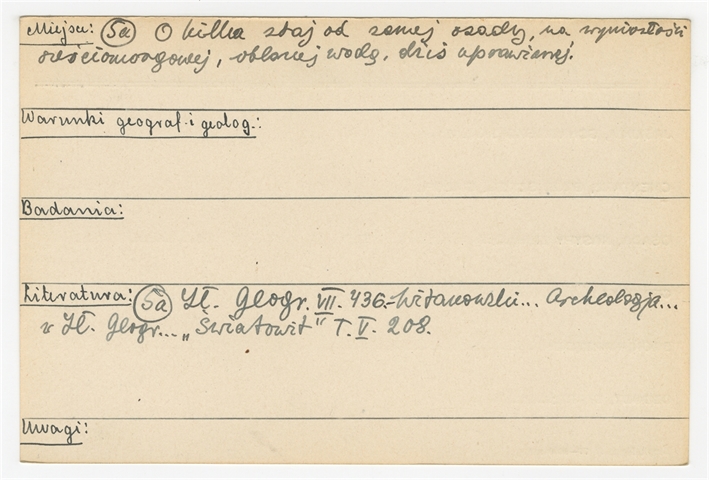 Miejsce: (5a) O kilka staj od samej osady, na wyniosłości
sześciomorgowej, oblanej wodą, dziś uprawianej.
Warunki geograf. i geolog.:
Badania:
Literatura: (5a) Sł. Geogr. VII. 436.-Witanowski... Archeologja...
w Sł. Geogr... „Światowit" T. V. 208.
Uwagi: